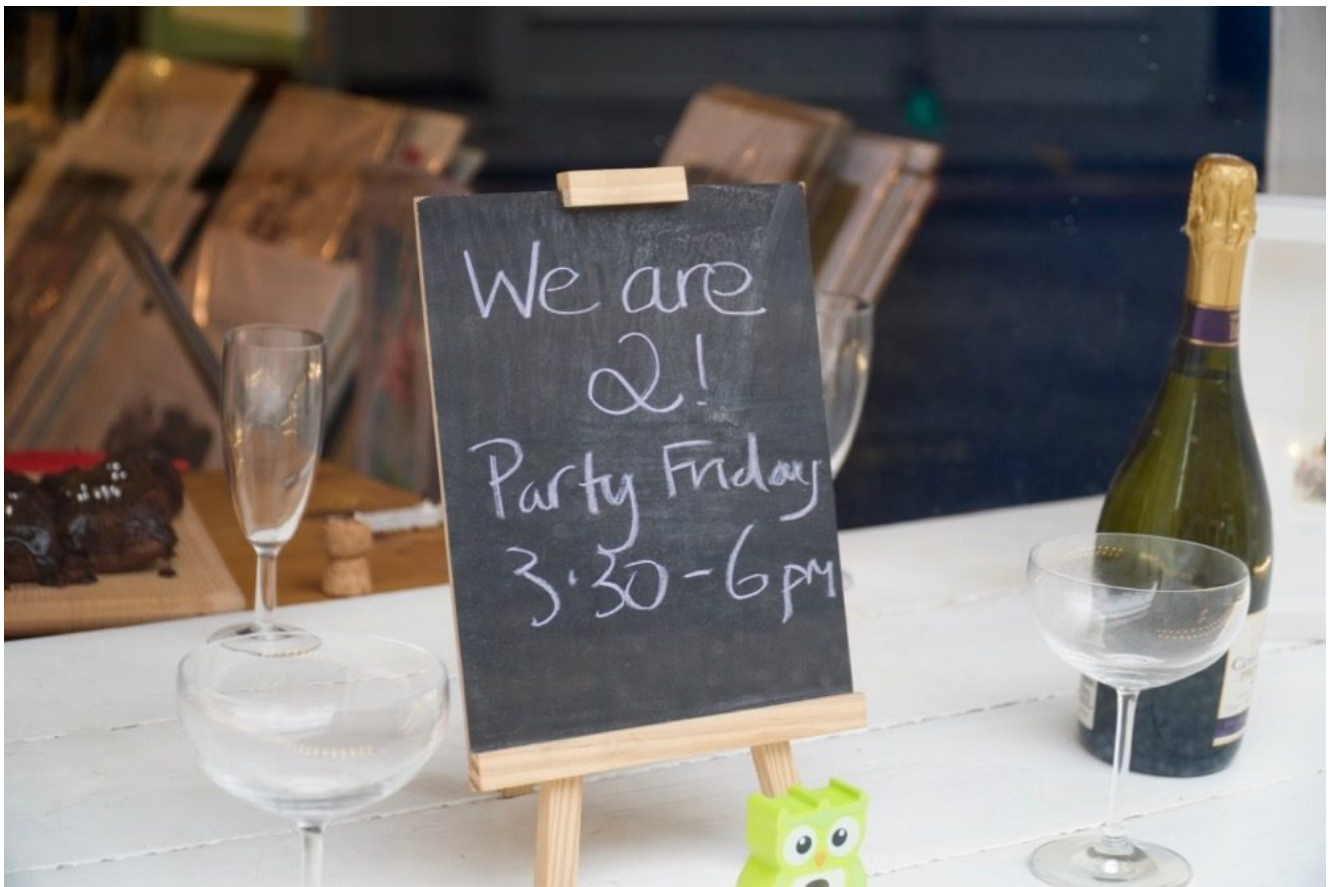 We are
2!
Party Friday
3.30-6pm